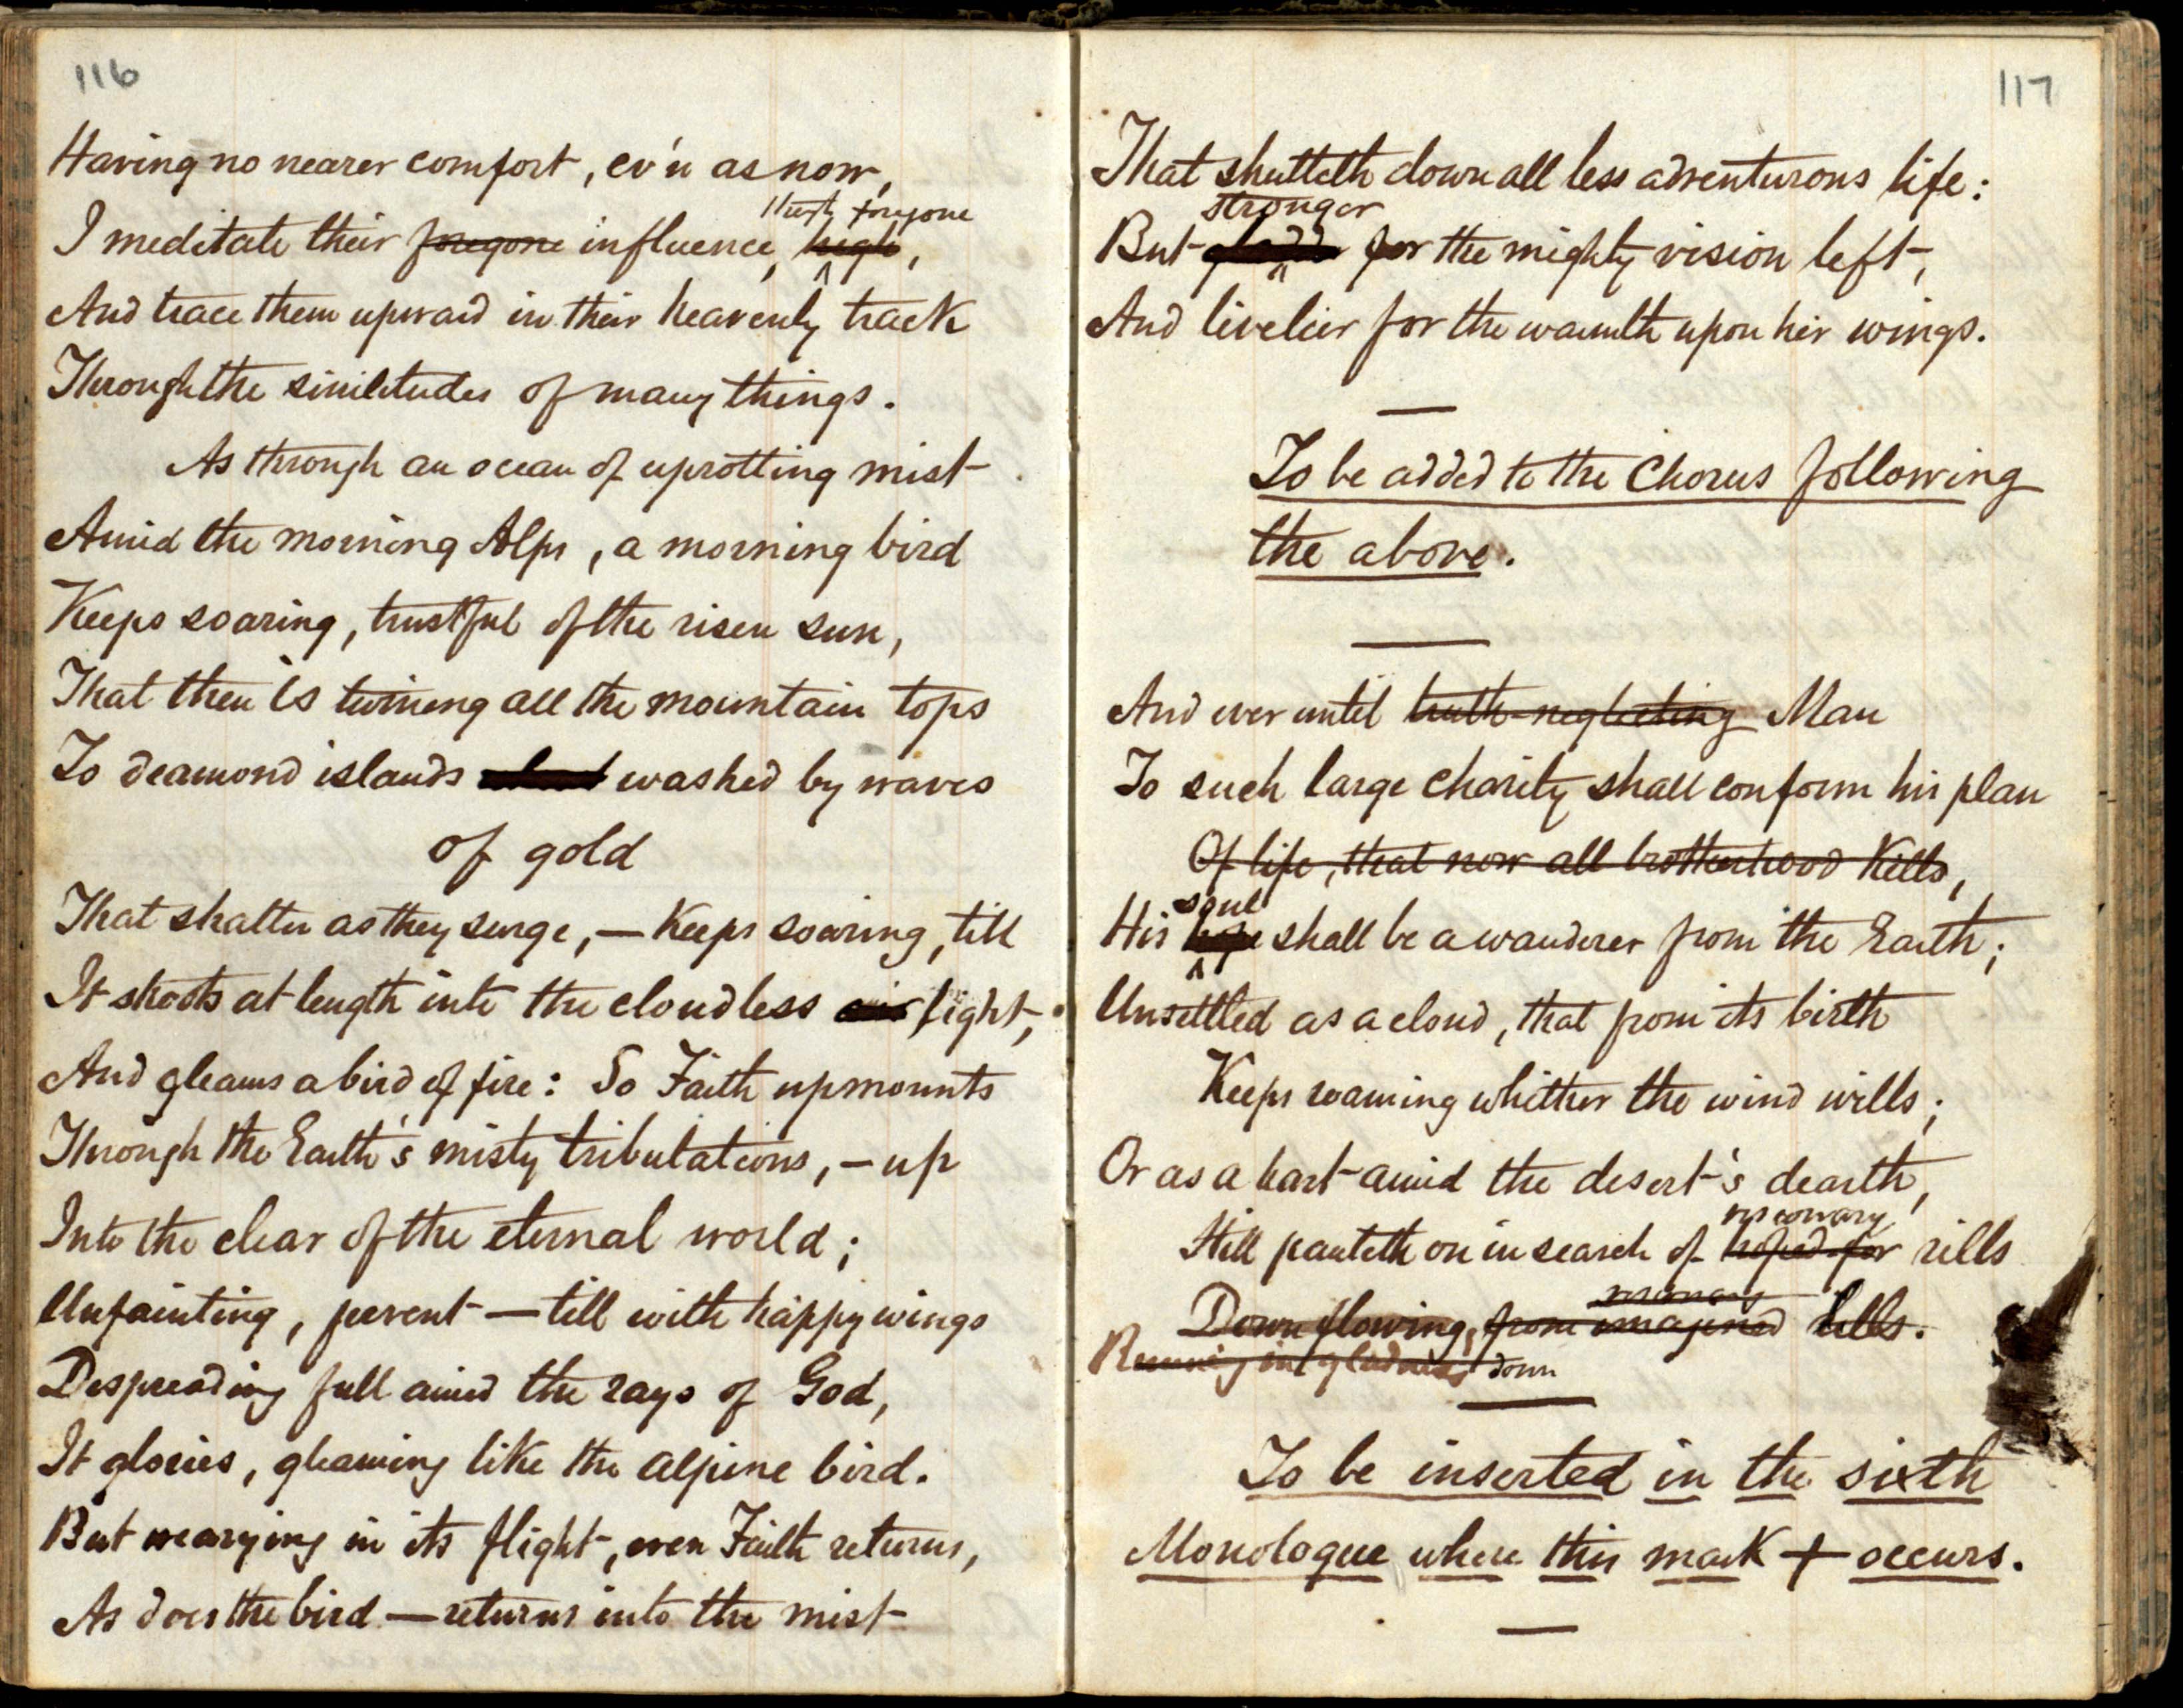 116
Having no nearer comfort, ev'n as now,
thus foregone
I meditate their foregone influence, high,
And trace them upward in their heavenly track
Through the similitudes of many things.
As through an ocean of uprolling mist
Amid the morning Alps, a morning bird
Keeps soaring, trustful of the risen sun,
That then is turning all the mountain tops
To diamond islands washed by waves
of gold
That shatter as they surge, — Keeps soaring, till
It shoots at length into the cloudless air light,
And gleams a bird of fire: So Faith upmounts
Through the Earth's misty tribulations, — up
Into the clear of the eternal world;
Unfainting, fervent — till with happy wings
Despreading full amid the rays of God,
It glories, gleaming like the alpine bird.
But wearying in its flight, even Faith returns,
As does the bird — returns into the mist
117
That shutteth down all less adventurous life:
stronger
But for the mighty vision left,
And livelier for the warmth upon her wings.
To be added to the Chorus following
the above.
And ever until truth-neglecting Man
To such large charity shall conform his plan
Of life, that now all brotherhood Kills,
soul
His hope shall be a wanderer from the Earth;
Unsettled as a cloud, that from its birth
Keeps roaming whither the wind wills;
Or as a hart amid the desert's dearth,
visionary
Still panteth on in search of hoped-for rills
visionary
Down flowing, from imagined hills.
Running in gladness down
To be inserted in the sixth
Monologue where this mark + occurs.